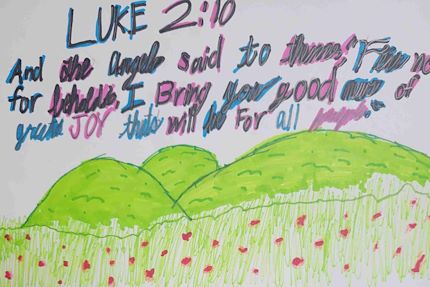 LUKE 2:10
And the Angel said to them, "Fear no
for behold, I Bring you good news of
great JOY thats will be For all people."